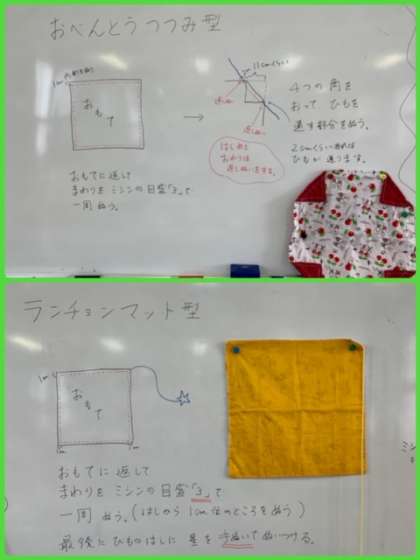 おべんとうつつみ型
おもて
おもてに返して
まわりをミシンの目盛「3」で
一周ぬう。
→
はじめと
おわりは
返しぬいをする。
4つの角を
おって ひもを
通す部分をぬう。
2cmくらいあれば
ひもが通ります。
ランチョンマット型
1cm
おもて
おもてに返して
まわりをミシンの目盛「3」で
一周ぬう。(はしから1cm位のところをぬう)
最後にひものはしに星を
ぬいつける。